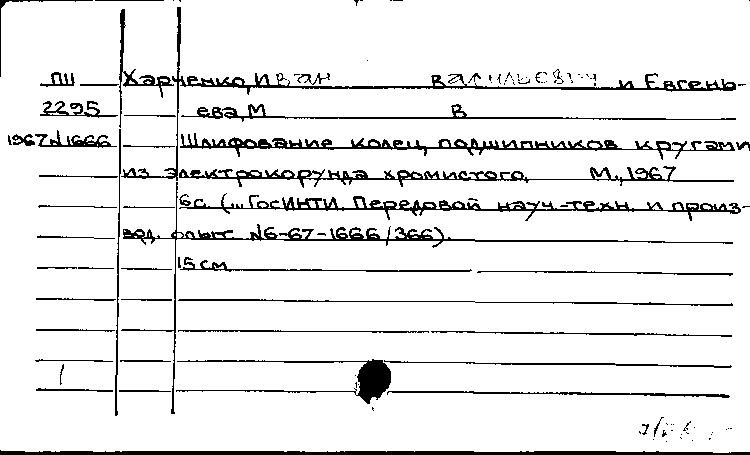 П11 Харченко, Иван Васильевич и Евгень-
2295 ева, М В
1967 №1666 Шлифование колец подшипников кругами
из электрокорунда хромистого. М., 1967
6с. (... ГосИНТИ. Передовой науч.-техн. и произ-
вод. опыт №6-67-1666/366).
15 см